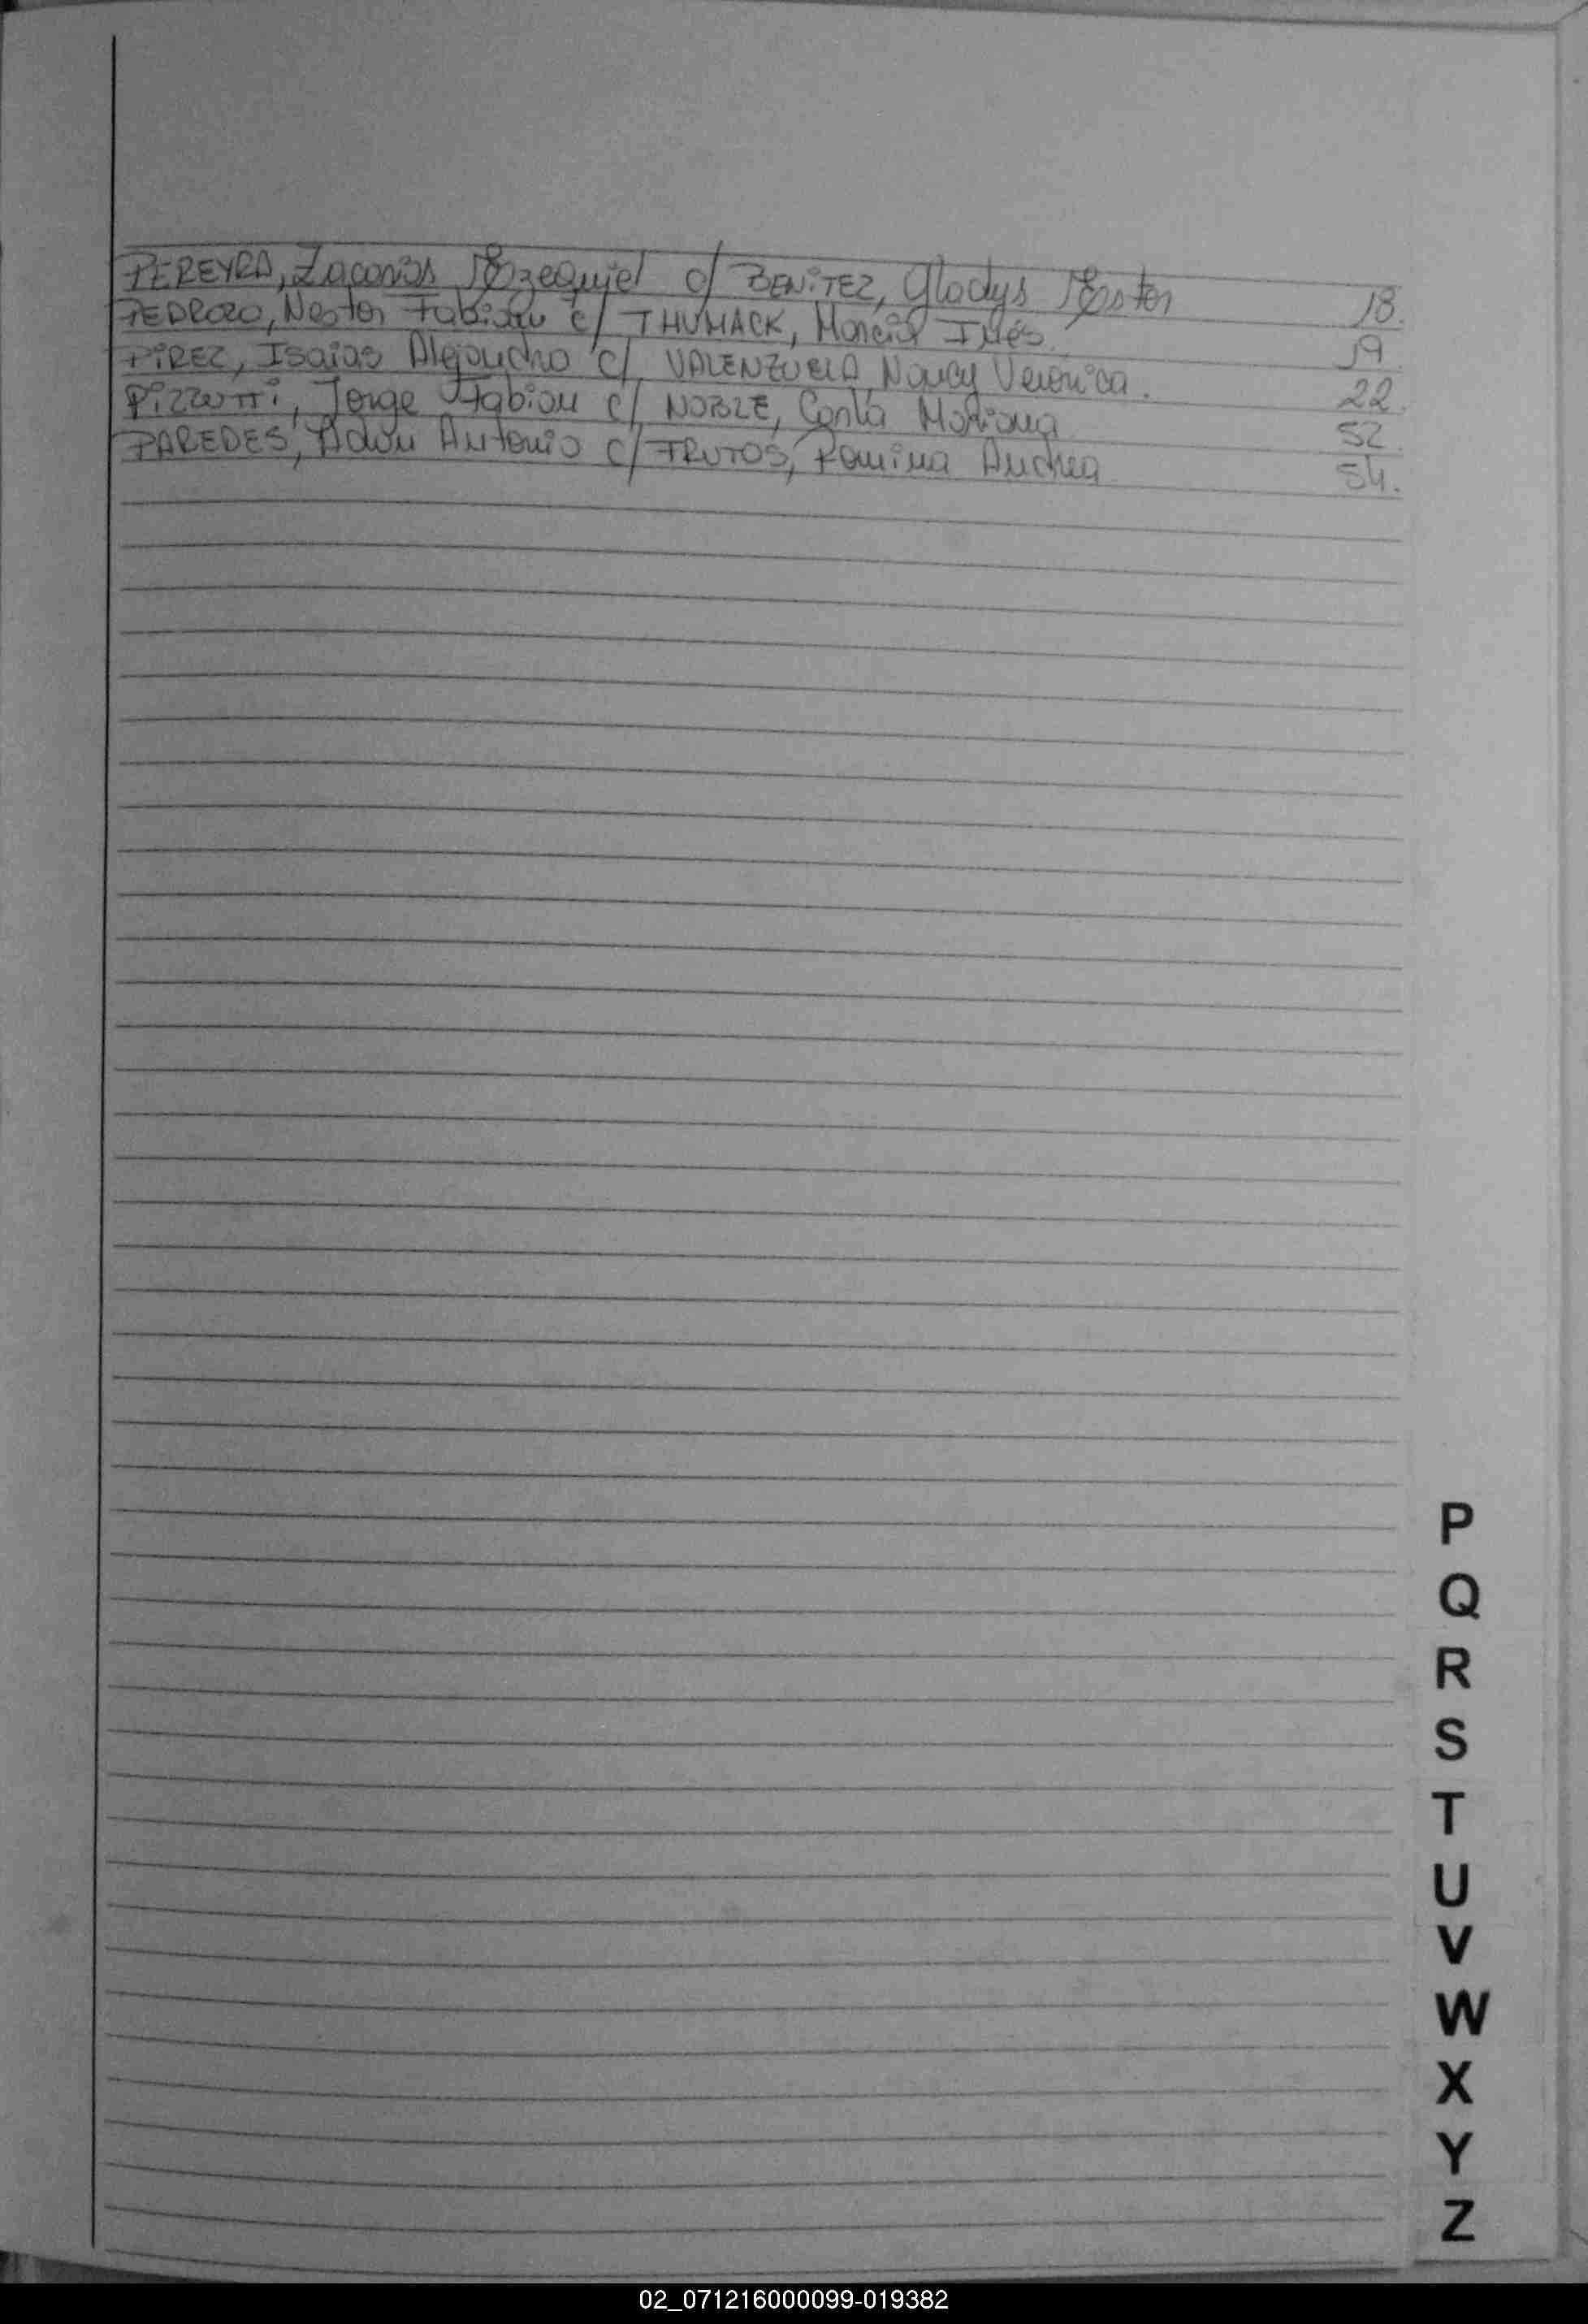 PEREYRA, Zacarías Ezequiel c/ BENITEZ, Gladys Ester 18.
PEDROZO, Nestor Fabián c/ THUMACK, Marcia Inés. 19.
PIREZ, Isaias Alejandro c/ VALENZUELA Nancy Veronica. 22.
Pizzutti, Jorge Fabian c/ NOBLE, Carla Mariana 52.
PAREDES, Adán Antonio c/ FRUTOS, Romina Andrea 54.
P
Q
R
S
T
U
V
W
X
Y
Z
02_071216000099-019382